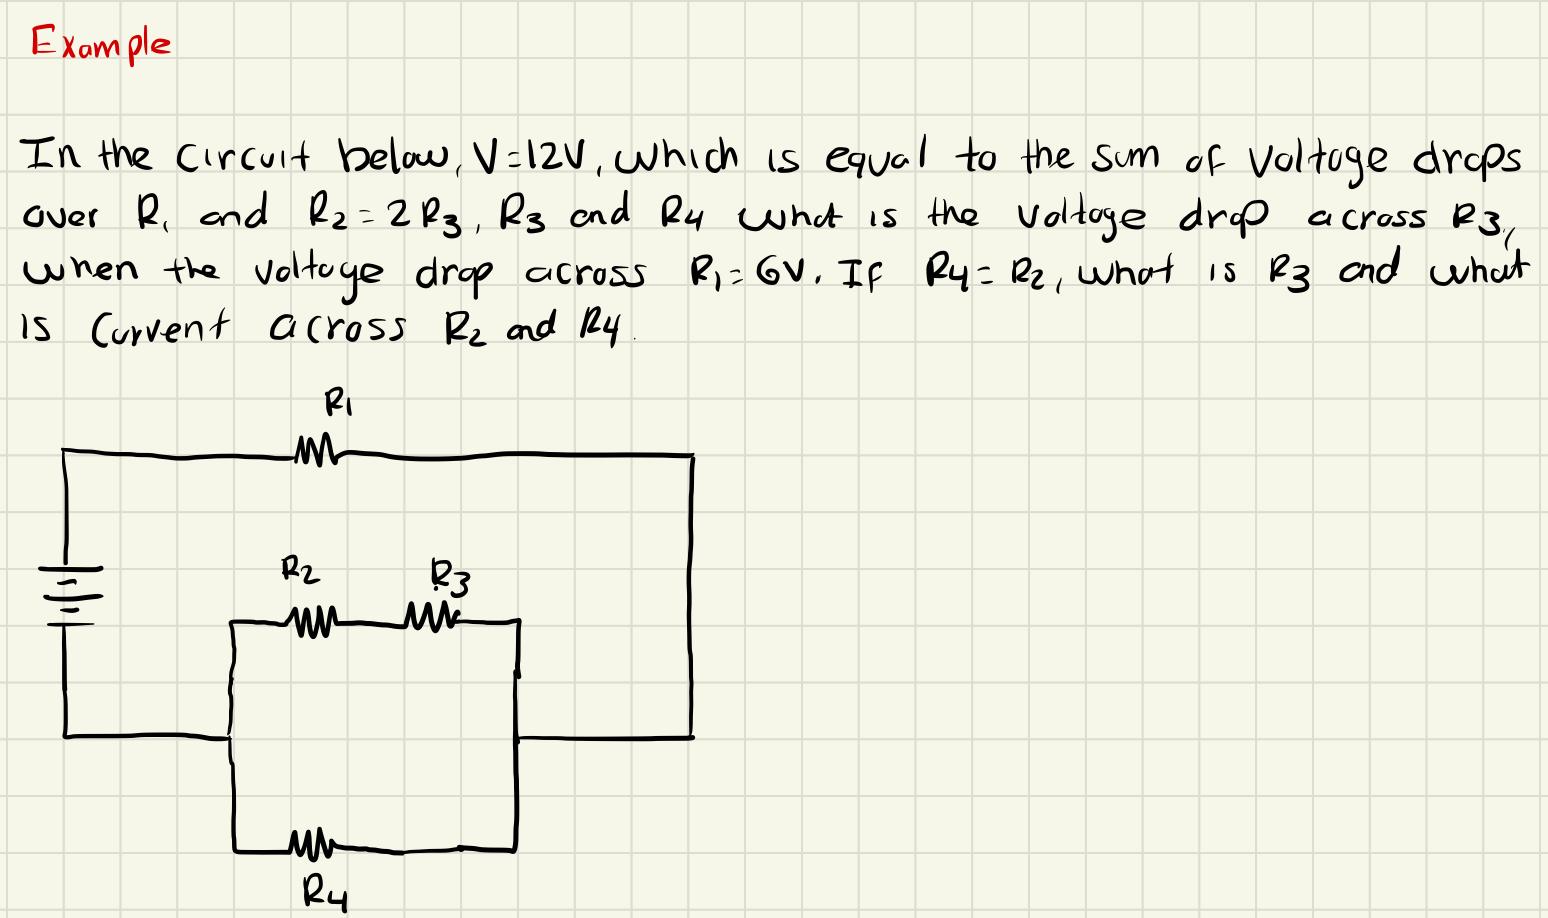 Example
In the circuit below, V=12V, which is equal to the sum of voltage drops
over R1 and R2=2R3, R3 and R4 what is the voltage drop across R3,
when the voltage drop across R1=6V. If R4=R2, what is R3 and what
is current across R2 and R4.
R1
R2 R3
R4